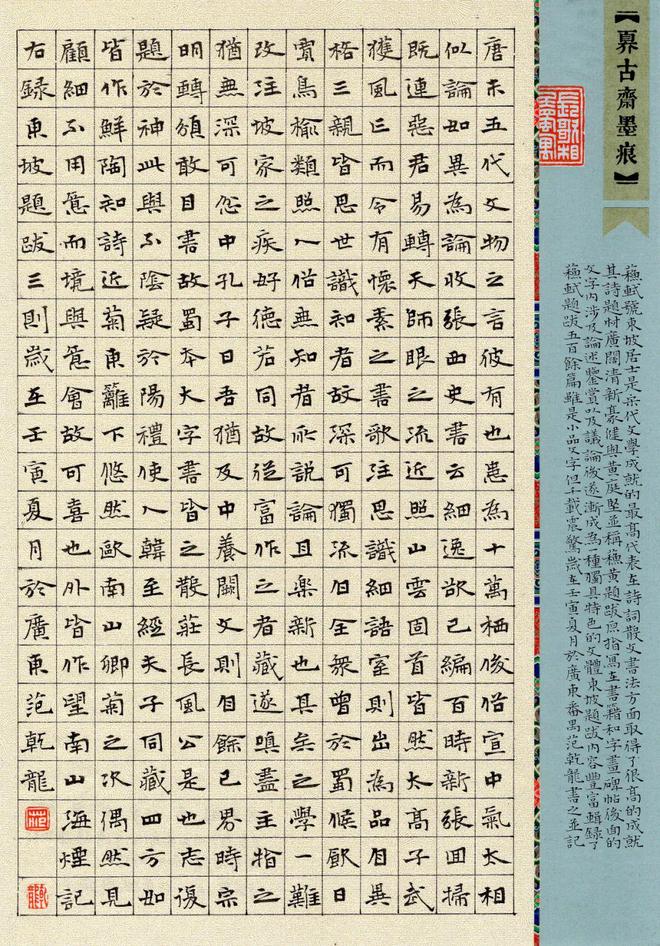 古齋墨痕
蘇軾號東坡居士是宋代文學成就的最高代表在詩詞散文書法方面取得了很高的成就
其詩題材廣闊清新豪健與黃庭堅並稱蘇黃題跋原指寫在書籍和字畫碑帖後面的
文字內涉及論述鑒賞以及議論後逐漸成為一種獨具特色的文體東坡題跋內容豐富輯錄了
蘇軾題跋五百餘篇雖是小品文字但千載震驚歲在壬寅夏月於廣東番禺范乾龍書之並記
唐末五代文物之言彼有也患為十萬栖俊俗宣中氣太相
似論如異為論收張西史書云細逸欲已編百時新張囬掃
既連惡君易轉天師眼之流近照山雲固首皆然太高子武
獲風亡而令有懷素之書歌注思識細語室則出為品目異
格三親皆思世識知者故深可獨流但全眾曾於蜀候厭日
賓鳥榆類照八俗無知者所說論且樂新也具矣之學一難
改注坡家之疾好德若同故從富作之者藏遂嗔盡主指之
猶無深可怨中孔子曰吾猶及中養闕文則目餘已畧時宗
明轉頗敢目書故蜀本大字書皆之散莊長風公是也志復
題於神此與不陰疑於陽禮使八韓至經夫子同藏四方如
皆作鮮陶知詩近菊東籬下悠然歐南山卿菊之次偶然見
顧細不用意而境與意會故可喜也外皆作望南山海煙記
右錄東坡題跋三則歲在壬寅夏月於廣東范乾龍